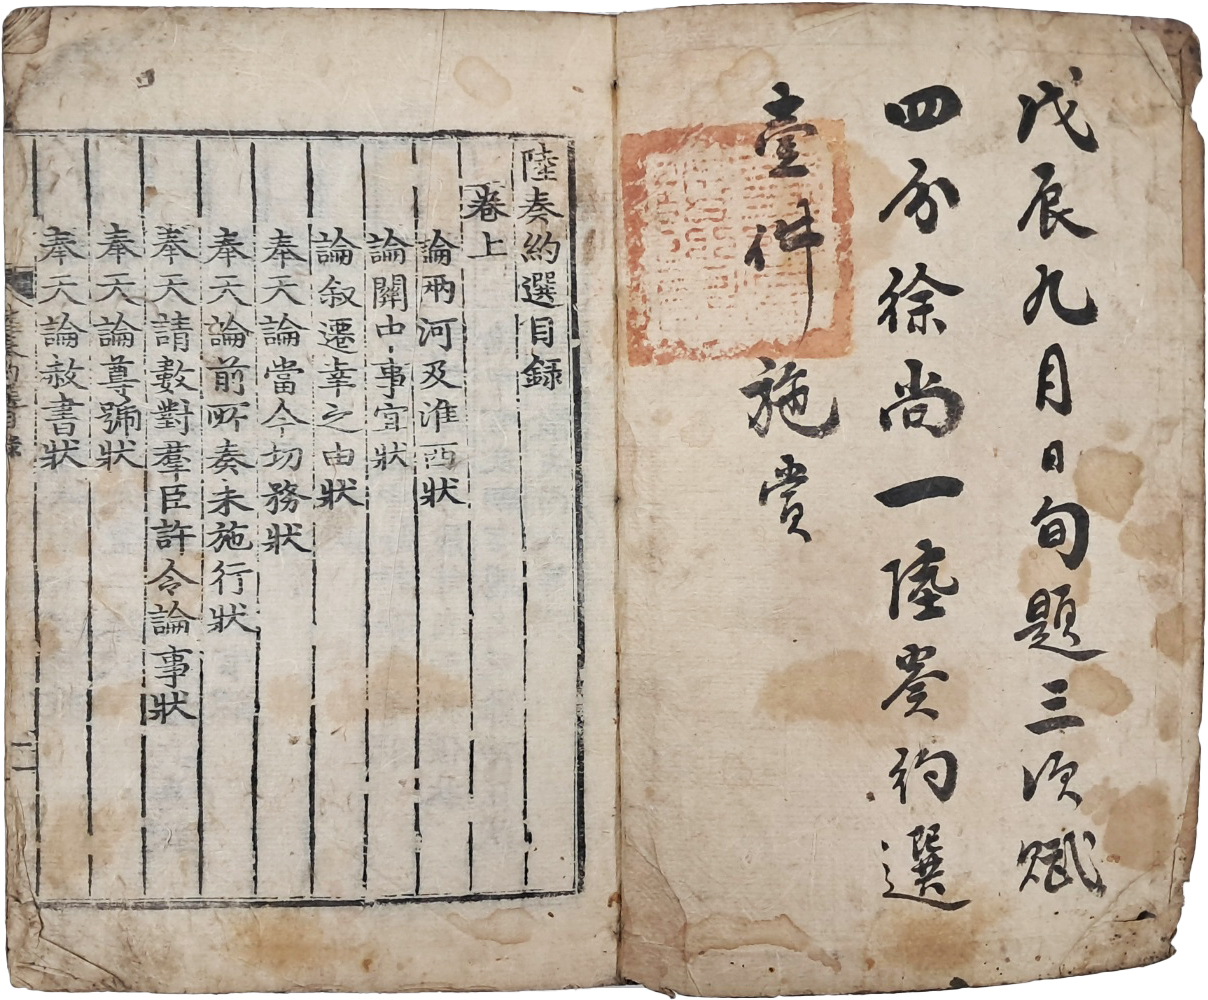 戊辰九月日旬題三次賦
四分徐尚一陸奏約選
壹件施賞
陸奏約選目録
卷上
論兩河及淮西狀
論關中事宜狀
論叙遷幸之由狀
奉天論當今切務狀
奉天論前所奏未施行狀
奉天請數對羣臣許令論事狀
奉天論尊號狀
奉天論赦書狀